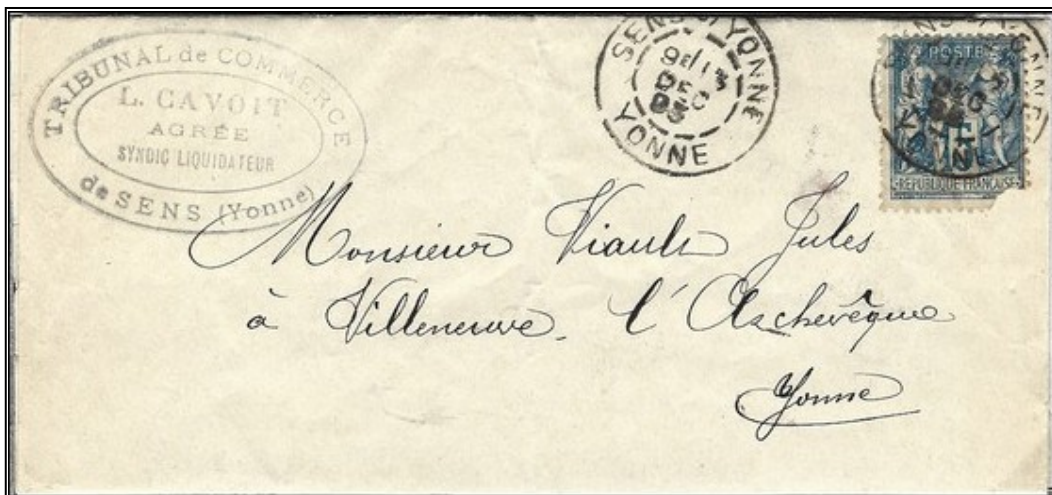 TRIBUNAL de COMMERCE
L. CAVOIT
AGRÉE
SYNDIC LIQUIDATEUR
de SENS (Yonne)
SENS S/ YONNE
DEC
93
YONNE
POSTES
15
REPUBLIQUE FRANÇAISE
Monsieur Viault Jules
à Villeneuve. l'Archevêque
Yonne